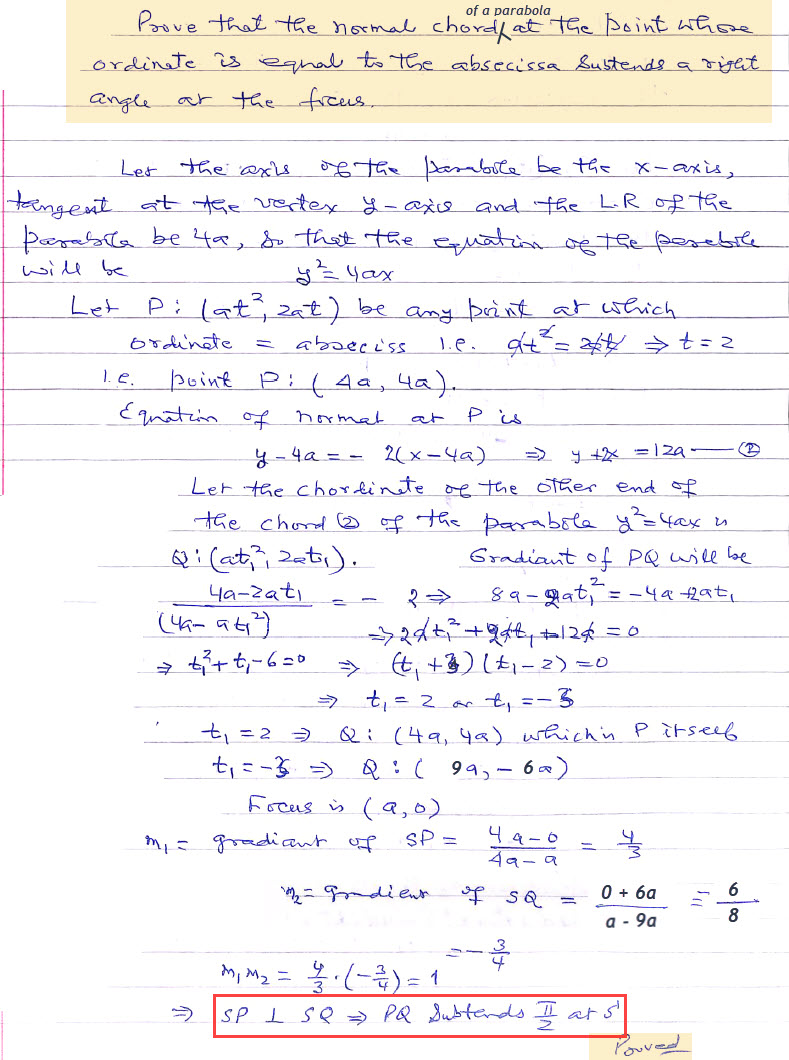 of a parabola
Prove that the normal chord at the point whose
ordinate is equal to the absecissa Subtends a right
angle at the focus.
Let the axis of the parabola be the x-axis,
tangent at the vertex y-axis and the L.R of the
parabola be 4a, so that the equation of the parabola
will be y²=4ax
Let P: (at², 2at) be any point at which
ordinate = abseciss i.e. at² = 2at ⇒ t = 2
i.e. point P: (4a, 4a).
Equation of normal at P is
y-4a = - 2(x-4a) ⇒ y+2x = 12a — ②
Let the chordinate of the other end of
the chord ② of the parabola y²=4ax is
Q: (at₁², 2at₁). Gradiant of PQ will be
(4a-2at₁)/(4a-at₁²) = - 2 ⇒ 8a-2at₁² = -4a+2at₁
⇒ 2at₁²+2at₁-12a = 0
⇒ t₁²+t₁-6=0 ⇒ (t₁+3)(t₁-2)=0
⇒ t₁ = 2 or t₁ = -3
t₁ = 2 ⇒ Q: (4a, 4a) which is P itself
t₁ = -3 ⇒ Q: ( 9a, - 6a)
Focus is (a, 0)
m₁ = gradiant of SP = (4a-0)/(4a-a) = 4/3
m₂ = gradient of SQ = (0 + 6a)/(a - 9a) = -6/8
= -3/4
m₁m₂ = 4/3 · (-3/4) = 1
⇒ SP ⊥ SQ ⇒ PQ Subtends π/2 at S
Proved